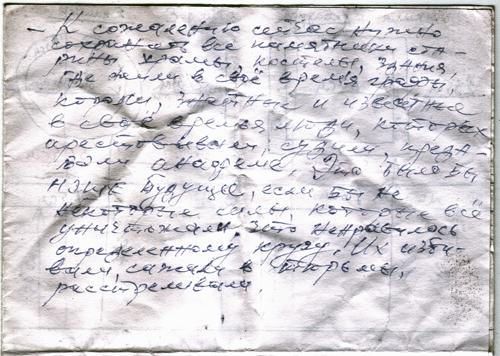 – К сожалению сейчас нужно
сохранить все памятники ста-
рины храмы, костелы, здания
где жили в своё время графы,
князи, знатные и известные
в своё время люди, которых
арестовывали, судили, преда-
вали анафеме. Это было бы
наше будущее, если бы не
некоторые силы, которые всё
уничтожали, что не нравилось
определенному кругу. Их изби-
вали, сажали в тюрьмы,
расстреливали.